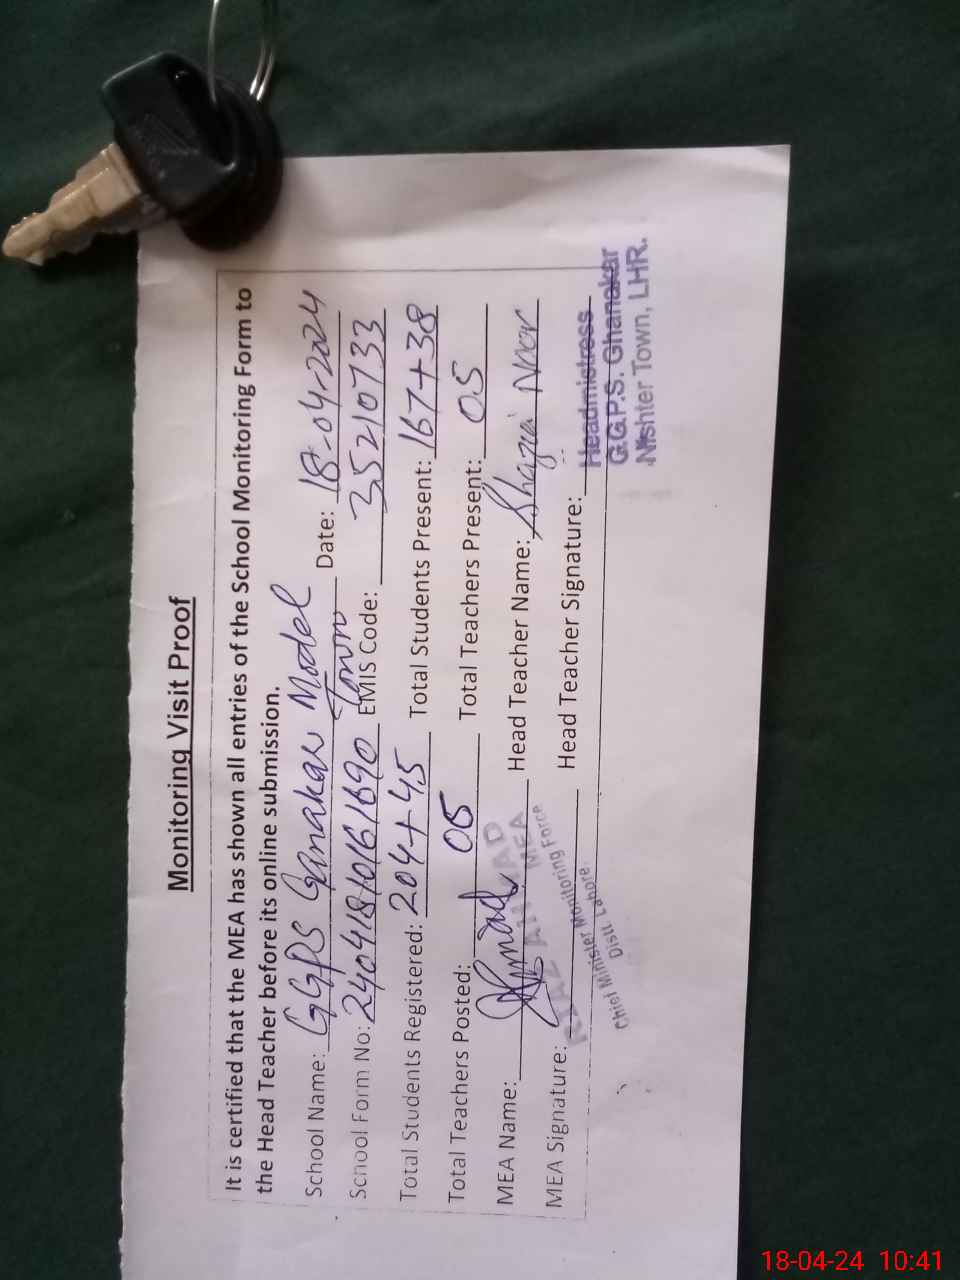 Monitoring Visit Proof
It is certified that the MEA has shown all entries of the School Monitoring Form to
the Head Teacher before its online submission.
School Name: GGPS Ganakar Model Town Date: 18-04-2024
School Form No: 24041810161690 EMIS Code: 35210733
Total Students Registered: 204+45 Total Students Present: 167+38
Total Teachers Posted: 05 Total Teachers Present: 05
MEA Name: Head Teacher Name: Shazia Noor
MEA Signature: Head Teacher Signature:
RIAZ AHMAD
MEA
Chief Minister Monitoring Force
Distt. Lahore
Headmistress
G.G.P.S. Ghanakar
Nishter Town, LHR.
18-04-24 10:41